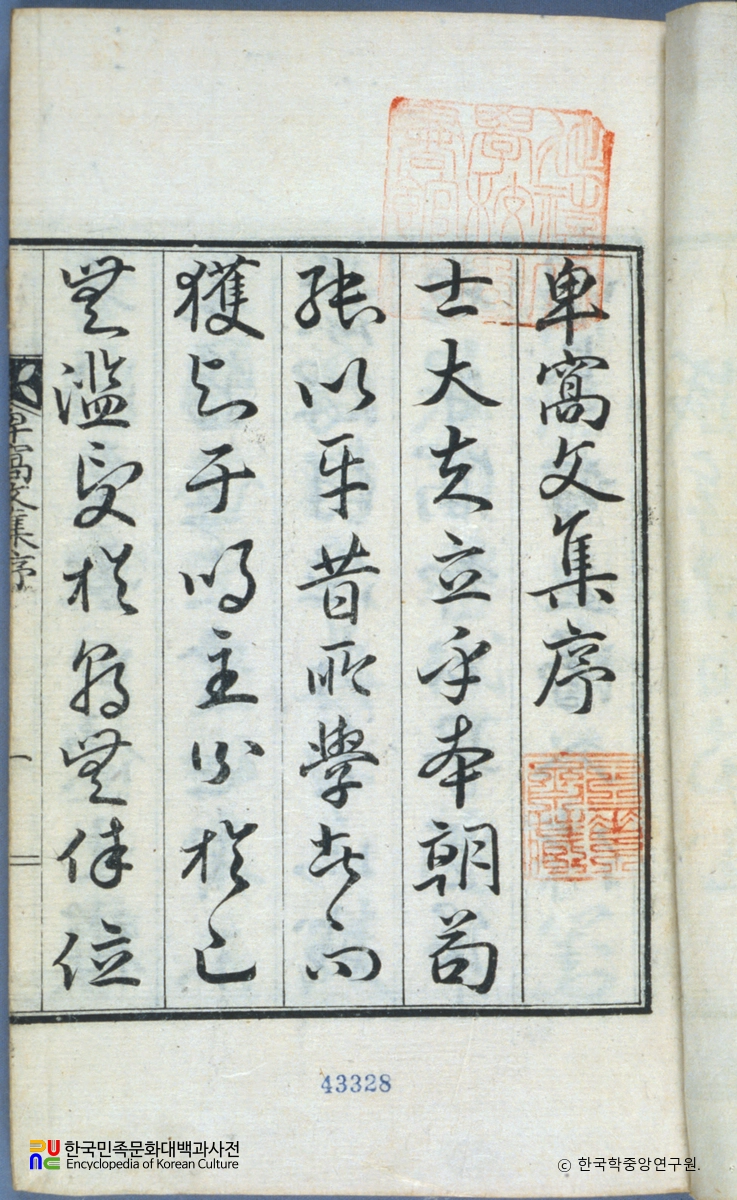 卑窩文集序
士大夫立乎本朝苟
能以平昔所學者而
獲知于明主於己
無濫受於朝無倖位
卑窩文集序
一
43328
한국민족문화대백과사전
Encyclopedia of Korean Culture
© 한국학중앙연구원.